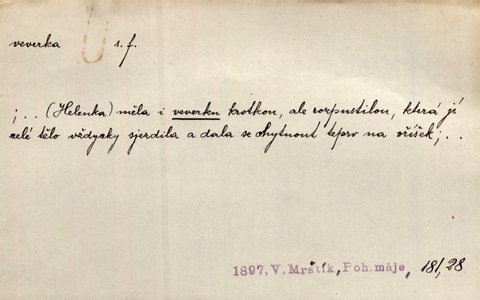 veverka s. f.
; . . (Helenka) měla i veverku krotkou, ale rozpustilou, která jí
celé tělo vědycky sjerdila a dala se chytnout teprv na oříšek; . .
1897, V. Mrštík, Poh. máje, 181, 28